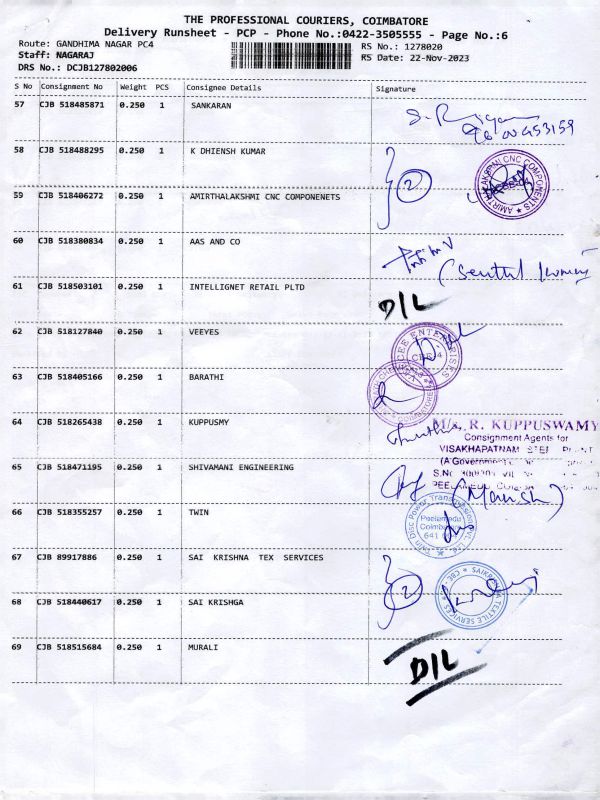 THE PROFESSIONAL COURIERS, COIMBATORE
Delivery Runsheet - PCP - Phone No.:0422-3505555 - Page No.:6
Route: GANDHIMA NAGAR PC4 RS No.: 1278020
Staff: NAGARAJ RS Date: 22-Nov-2023
DRS No.: DCJB127802006
S No Consignment No Weight PCS Consignee Details Signature
57 CJB 518485871 0.250 1 SANKARAN
58 CJB 518488295 0.250 1 K DHIENSH KUMAR
2
AMIRTHALAKSHMI CNC COMPONENTS
59 CJB 518406272 0.250 1 AMIRTHALAKSHMI CNC COMPONENETS
60 CJB 518380834 0.250 1 AAS AND CO
(Senthil Kumar)
61 CJB 518503101 0.250 1 INTELLIGNET RETAIL PLTD
D/L
62 CJB 518127840 0.250 1 VEEYES
ENTERPRISES
CBE-4
63 CJB 518405166 0.250 1 BARATHI
COIMBATORE
64 CJB 518265438 0.250 1 KUPPUSMY
M/s. R. KUPPUSWAMY
Consignment Agents for
VISAKHAPATNAM STEEL PLANT
(A Government
65 CJB 518471195 0.250 1 SHIVAMANI ENGINEERING
(Manish)
66 CJB 518355257 0.250 1 TWIN
Twin Disc Power Transmission Pvt. Ltd.
Peelamedu
Coimbatore
641
67 CJB 89917886 0.250 1 SAI KRISHNA TEX SERVICES
2
TEXTILE SERVICES CBE
68 CJB 518440617 0.250 1 SAI KRISHGA
69 CJB 518515684 0.250 1 MURALI
D/L